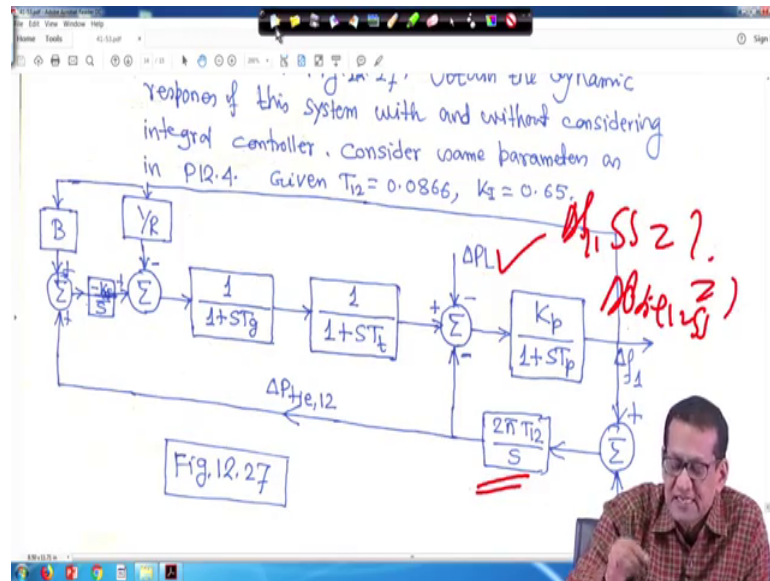 41-53.pdf - Adobe Acrobat Reader DC
File Edit View Window Help
Home Tools 41-53.pdf × Sign
Obtain the dynamic
respones of this system with and without considering
integral controller. Consider same parameters as
in P12.4. Given T12 = 0.0866, KI = 0.65.
B
1/R
Σ
Σ
1/1+STg
1/1+STt
ΔPL
Σ
Kp/1+STp
Δf1
ΔPtie,12
2πT12/S
Σ
Fig.12.27
Δf1 SS = ?